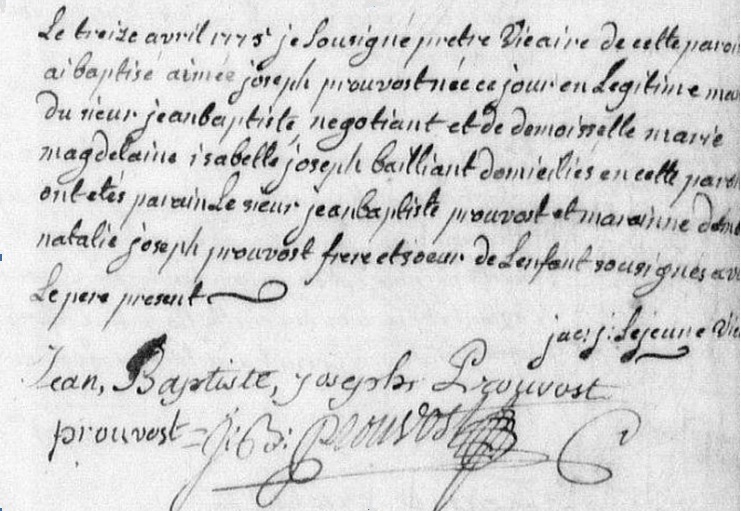 Le treize avril 1775 je Sousigné pretre Vicaire de cette paroi
ai baptisé aimée joseph prouvost née ce jour en Legitime mar
du sieur jeanbaptiste, negotiant et de demoisselle marie
magdelaine isabelle joseph bailliant domiciliés en cette paroi
ont etés parain Le sieur jeanbaptiste prouvost et marainne dem
natalie joseph prouvost frere et soeur de Lenfant sousignés av
Le pere present
jac: j: Lejeune Vic
Jean, Baptiste, joseph, Prouvost
prouvost = J: B: Prouvost